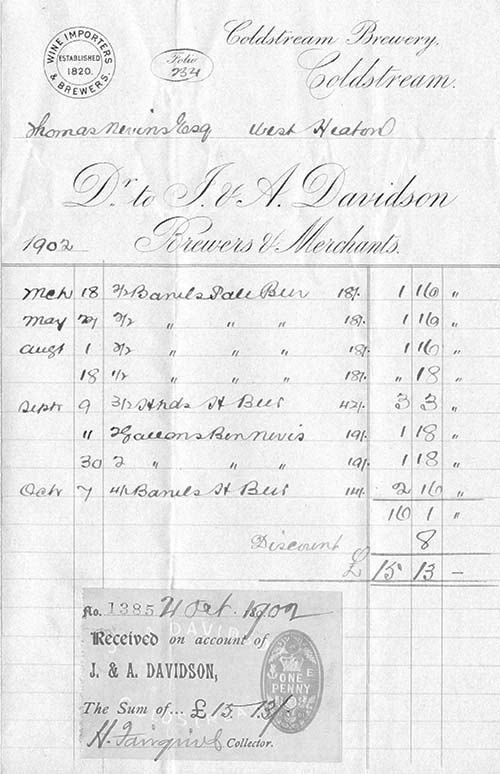 WINE IMPORTERS & BREWERS.
ESTABLISHED 1820.
Folio 234
Coldstream Brewery,
Coldstream.
Thomas Nevins Esq West Heaton
Dr. to J. & A. Davidson
1902 Brewers & Merchants.
Mch 18 2/2 Barrels Pale Beer 18/- 1 16 "
May 2/2 " " " 18/- 1 16 "
Augt 1 2/2 " " " 18/- 1 16 "
18 1/2 " " " 18/- " 18 "
Septr 9 3/2 Hhds H Beer 42/- 3 3 "
" 2 Gallons Ben Nevis 19/- 1 18 "
30 2 " " " 19/- 1 18 "
Octr 7 4/2 Barrels H Beer 14/- 2 16 "
16 1 "
Discount 8
£ 15 13 -
No. 1385 Oct. 1902
Received on account of
J. & A. DAVIDSON,
The Sum of... £ 15. 13/-
H. Collector.
ONE PENNY